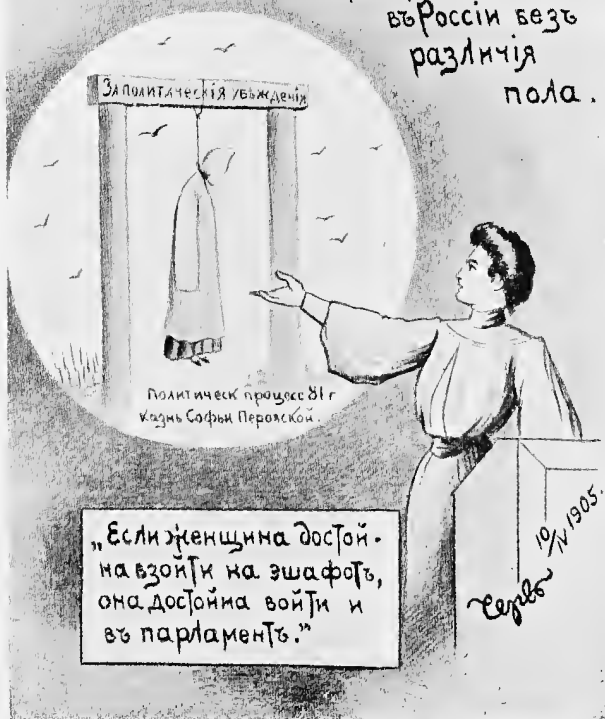 въ Россіи безъ
различія
пола.
За политическія убѣжденія
Политическ процесс 81 г
Казнь Софьи Перовской.
„Если женщина достой-
на взойти на эшафотъ,
она достойна войти и
въ парламентъ.”
10/IV 1905.